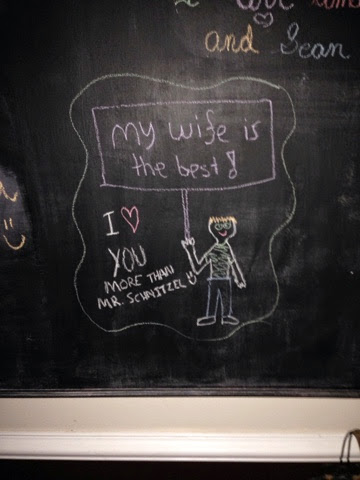 I love
and Sean
my wife is
the best!
I ♥
YOU
MORE THAN
MR. SCHNITZEL